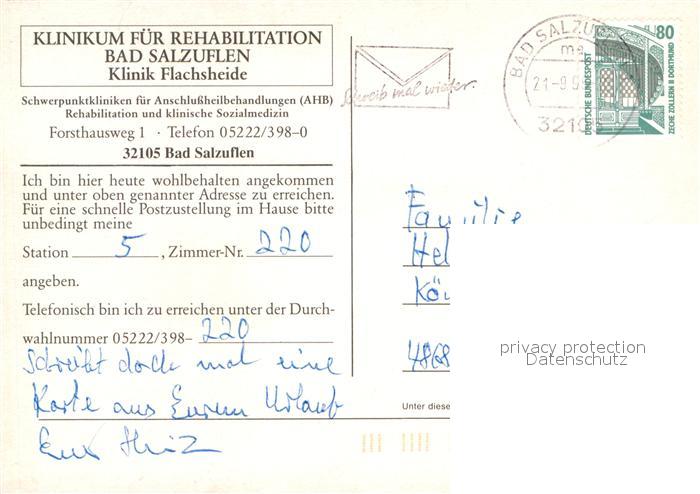 KLINIKUM FÜR REHABILITATION
BAD SALZUFLEN
Klinik Flachsheide
Schwerpunktkliniken für Anschlußheilbehandlungen (AHB)
Rehabilitation und klinische Sozialmedizin
Forsthausweg 1 · Telefon 05222/398–0
32105 Bad Salzuflen
Ich bin hier heute wohlbehalten angekommen
und unter oben genannter Adresse zu erreichen.
Für eine schnelle Postzustellung im Hause bitte
unbedingt meine
Station 5, Zimmer-Nr. 220
angeben.
Telefonisch bin ich zu erreichen unter der Durch-
wahlnummer 05222/398– 220
Schreibt doch mal eine
Karte aus Eurem Urlaub
Euer
Schreib mal wieder.
BAD SALZU
21-9.9
3210
80
DEUTSCHE BUNDESPOST
ZECHE ZOLLERN II DORTMUND
Familie
Hel
Kö
4868
privacy protection
Datenschutz
Unter diese